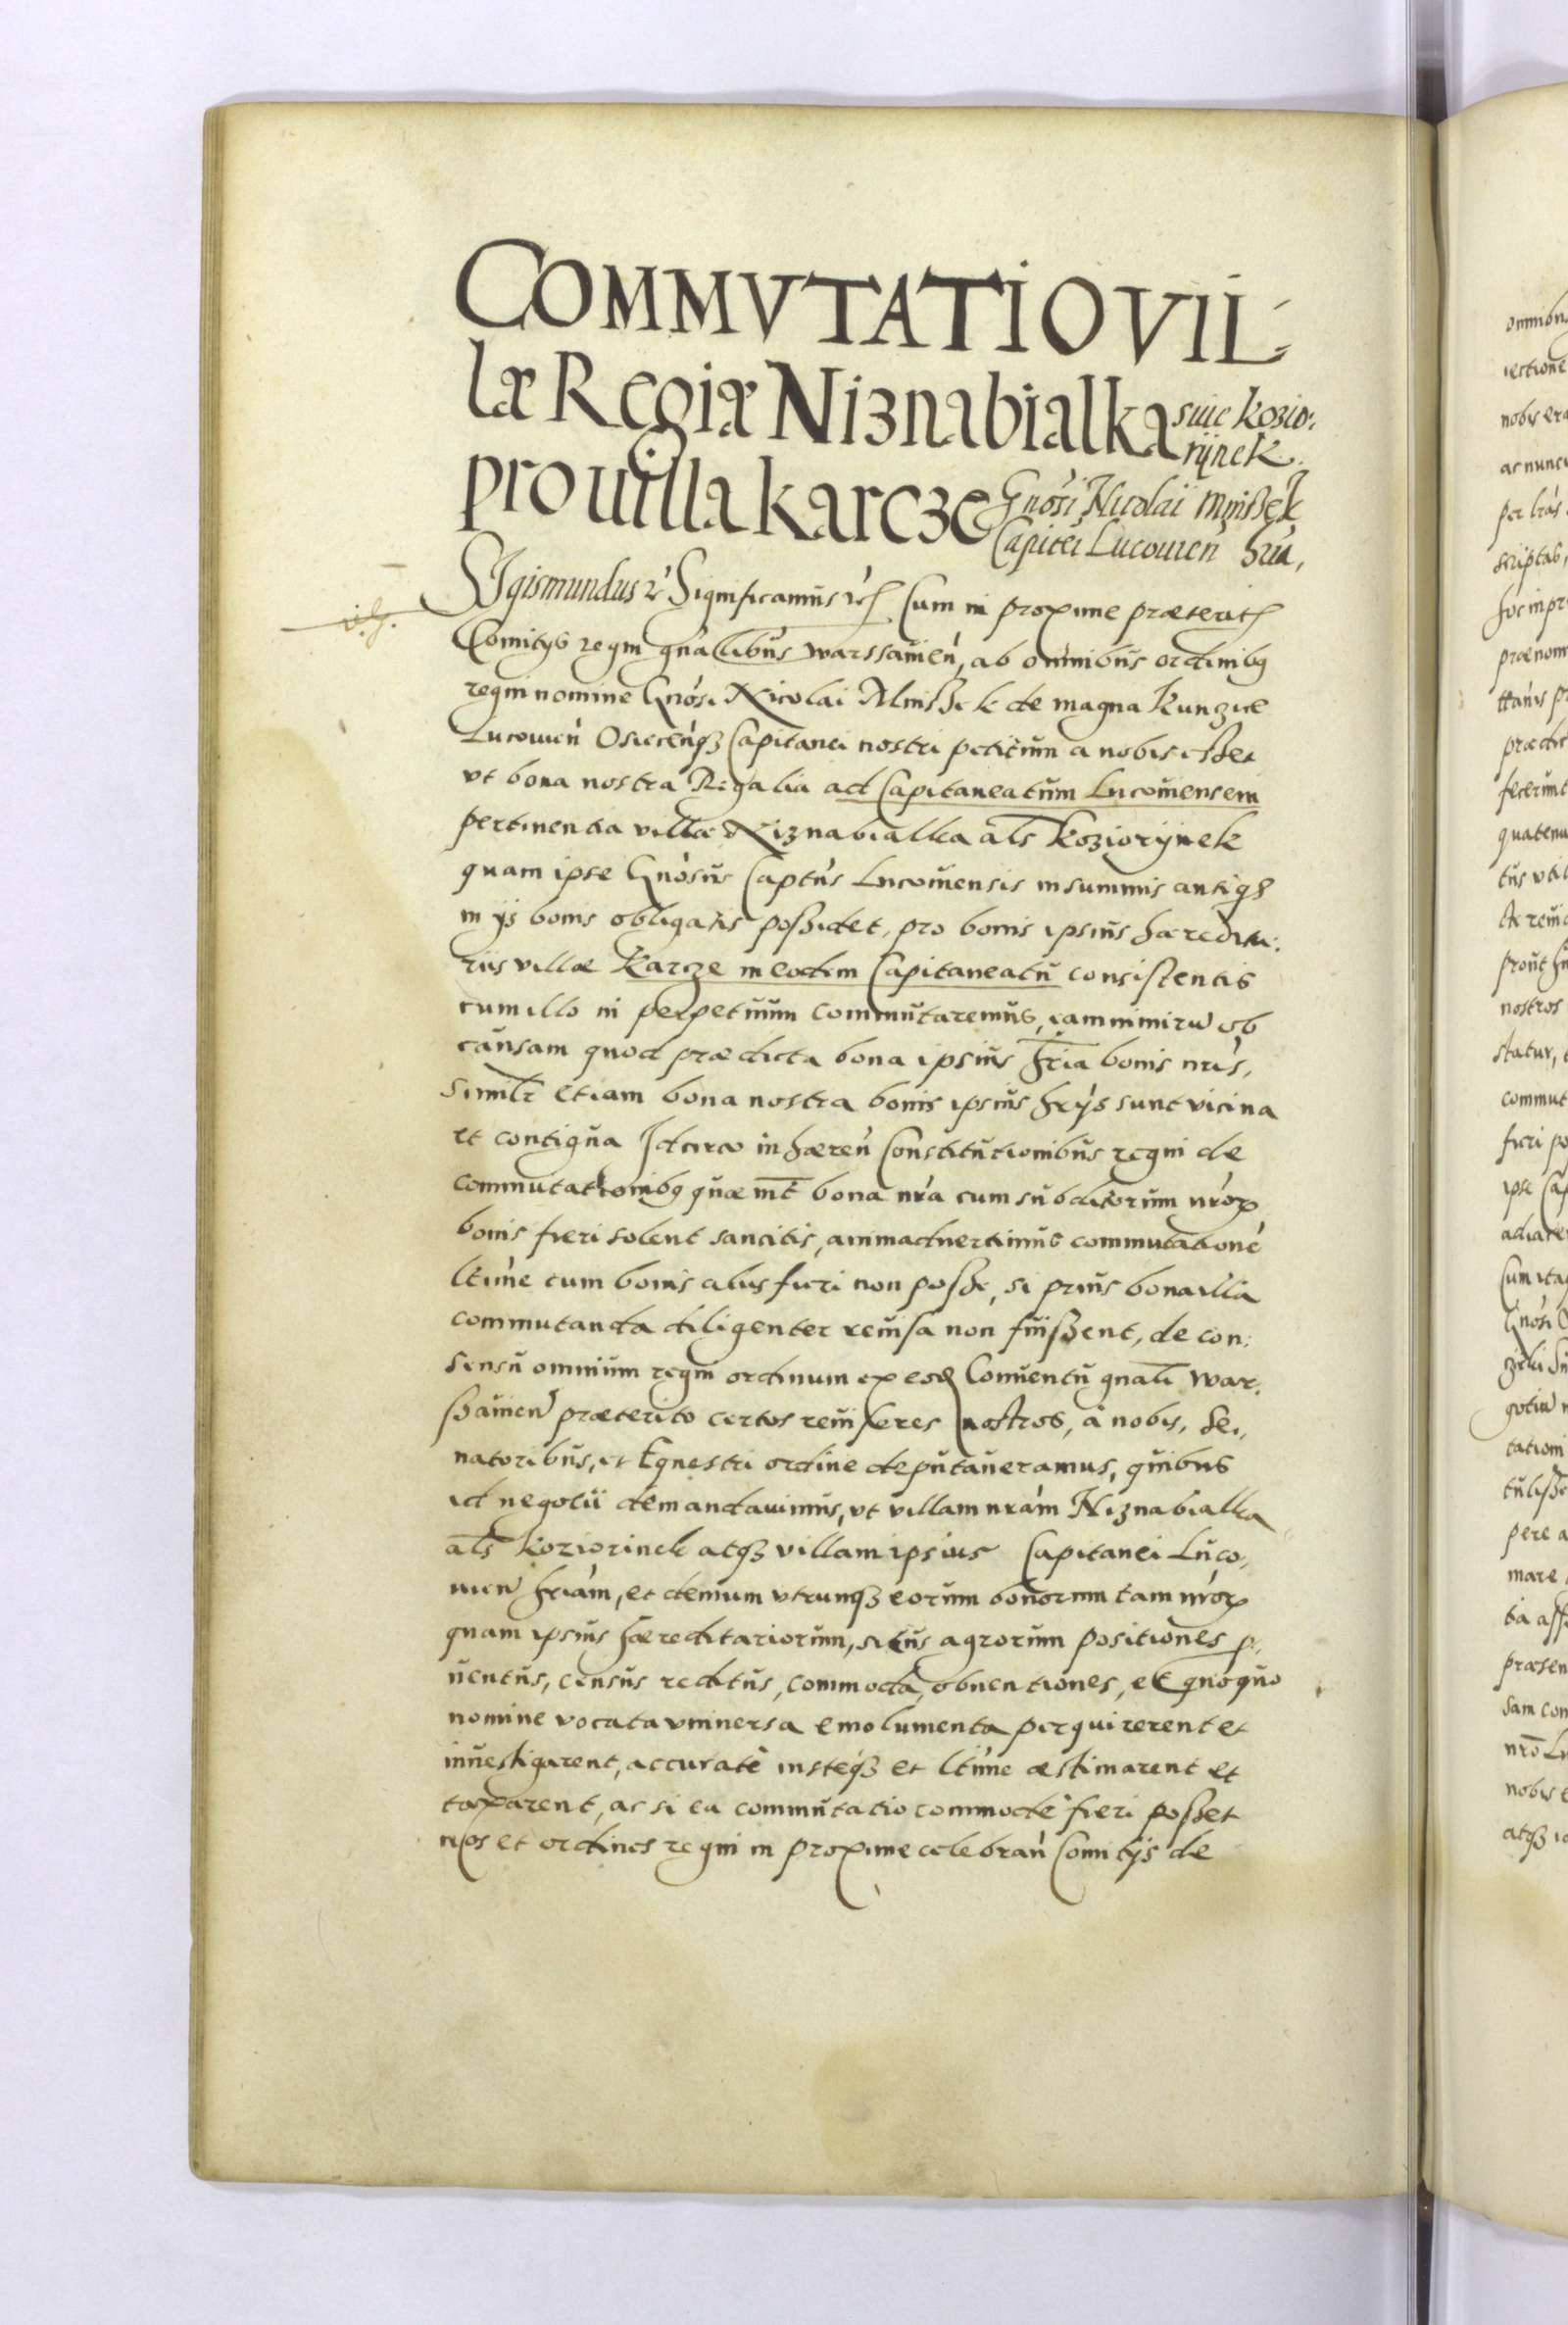 COMMVTATIO VIL-
læ Regiæ Niznabialka siue Kozio:
rÿnek.
pro uilla Karcze Gnósi Nicolai Mnissek
Capitei Lucouien hria,
Sigismundus Significamus Cum in proxime præterit
Comitÿs regni gnalibus Warssauien, ab omnibus ordinibq
regni nomine Gnósi Nicolai Mnissek de magna Kunzice
Lucouien Osiecenqz Capitanei nostri petitum a nobis esset
vt bona nostra Regalia ad Capitaneatum Lucouiensem
pertinentia villæ Niznabialka als Koziorÿnek
quam ipse Gnósus Captus Lucouiensis in summis antiqs
in ÿs bonis obligatis possidet, pro bonis ipsius hæredita:
riis villæ Karcze in eodem Capitaneatu consistentis
cum illo in perpetuum commutaremus, eam nimiru ob
causam quod prædicta bona ipsius hria bonis nris,
similr etiam bona nostra bonis ipsius hrÿs sunt vicina
et contigua Idcirco inhæren Constitutionibus regni de
commutationibq quæ int bona nra cum subditorum nrorx
bonis fieri solent sancitis, animaduertimus commutatione
ltime cum bonis alijs fieri non posse, si prius bona illa
commutanda diligenter reuisa non fuissent, de con:
sensu omnium regni ordinum ex eod Conuentu gnali War:
ssauien præterito certos reuisores nostros, a nobis, Se,,
natoribus, et Equestri ordine deputaueramus, quibus
id negotii demandauimus, vt villam nram Niznabialka
als Koziorinek atqz villam ipsius Capitanei Luco,,
uien hriam, et demum vtrunqz eorum bonorum tam nrorx
quam ipsius hæreditariorum, situs agrorum positiones p,,
uentus, census reditus, commoda, obuentiones, et quoquo
nomine vocata vniuersa emolumenta perquirerent et
inuestigarent, accurate iusteqz et ltime æstimarent et
taxarent, ac si ea commutatio commode fieri posset
nos et ordines regni in proxime celebran Comitÿs de